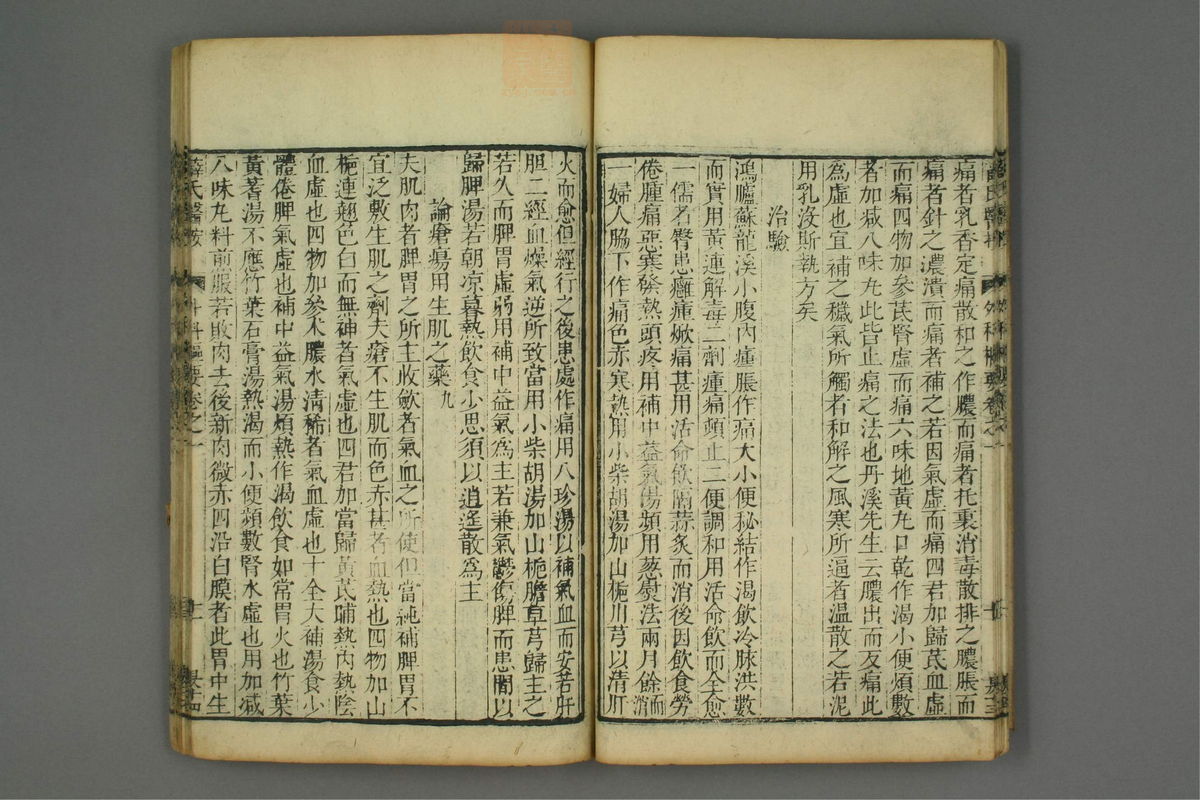 痛者乳香定痛散和之作膿而痛者托裏消毒散排之膿脹而
痛者針之膿潰而痛者補之若因氣虛而痛四君加歸芪血虛
而痛四物加參芪腎虛而痛六味地黃丸口乾作渴小便頻數
者加减八味丸此皆止痛之法也丹溪先生云膿出而反痛此
爲虛也宜補之穢氣所觸者和解之風寒所逼者温散之若泥
用乳沒斯執方矣
治驗
鴻臚蘇龍溪小腹內瘇脹作痛大小便秘結作渴飲冷脉洪數
而實用黃連解毒二劑瘇痛頓止二便調和用活命飲而全愈
一儒者臀患癰瘇焮痛甚用活命飲隔蒜炙而消後因飲食勞
倦腫痛惡寒發熱頭疼用補中益氣湯頻用葱熨法兩月餘而消
一婦人脇下作痛色赤寒熱用小柴胡湯加山梔川芎以清肝
火而愈但經行之後患處作痛用八珍湯以補氣血而安若肝
胆二經血燥氣逆所致當用小柴胡湯加山梔膽草芎歸主之
若久而脾胃虛弱用補中益氣爲主若兼氣鬱傷脾而患間以
歸脾湯若朝凉暮熱飲食少思須以逍遙散爲主
論瘡瘍用生肌之藥九
夫肌肉者脾胃之所主收斂者氣血之所使但當純補脾胃不
宜泛敷生肌之劑夫瘡不生肌而色赤甚者血熱也四物加山
梔連翹色白而無神者氣虛也四君加當歸黃芪晡熱內熱陰
血虛也四物加參术膿水清稀者氣血虛也十全大補湯食少
體倦脾氣虛也補中益氣湯煩熱作渴飲食如常胃火也竹葉
黃蓍湯不應竹葉石膏湯熱渴而小便頻數腎水虛也用加减
八味丸料煎服若敗肉去後新肉微赤四沿白膜者此胃中生
薛氏醫按
外科樞要卷之一